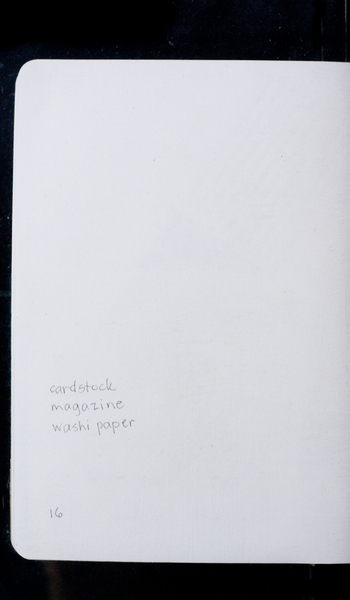 cardstock
magazine
washi paper
16